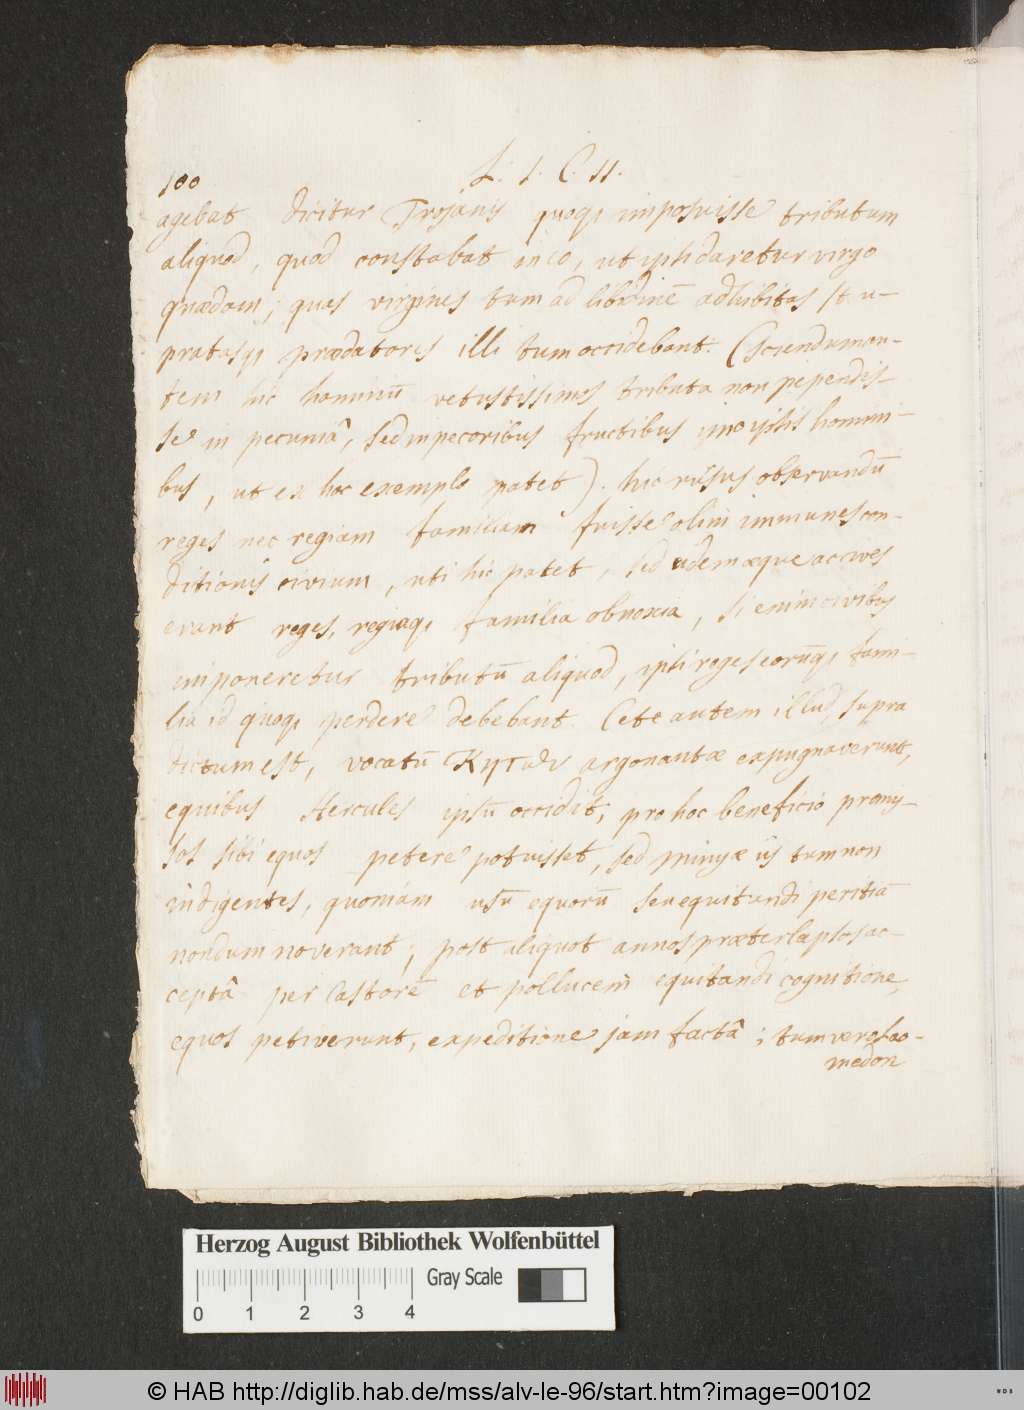 100
L. 1. C. 11.
agebat dicitur Trojanis quoqȝ imposuisse tributum
aliquod, quod constabat in eo, ut ipsi daretur virgo
quædam; quas virgines tum ad libidinē adhibitas stu-
pratasqȝ prædatores illi tum occidebant. (Sciendum au-
tem hic hominū vetustissimos tributa non pependis-
se in pecuniâ, sed in pecoribus fructibus imo ipsis homini-
bus, ut ex hoc exemplo patet). hic rursus observandū
reges nec regiam familiam fuisse olim immunes con-
ditionis civium, uti hic patet, sed idem æque ac cives
erant reges, regiaqȝ familia obnoxia, si enim civibus
imponeretur tributū aliquod, ipsi reges eorūqȝ fami-
lia id quoqȝ perdere debebant. Cete autem illud, supra
dictum est, vocatū argonautæ expugnaverunt,
equibus Hercules ipsū occidit; pro hoc beneficio promis-
sos sibi equos petere potuisset, sed Minyæ iis tum non
indigentes, quoniam usū equorū seu equitandi peritiā
nondum noverant; post aliquot annos præterlapsos ac-
ceptâ per Castorē et pollucem equitandi cognitione,
equos petiverunt, expeditione jam factâ; tum vero Lao-
medon
Herzog August Bibliothek Wolfenbüttel
Gray Scale
0 1 2 3 4
© HAB http://diglib.hab.de/mss/alv-le-96/start.htm?image=00102